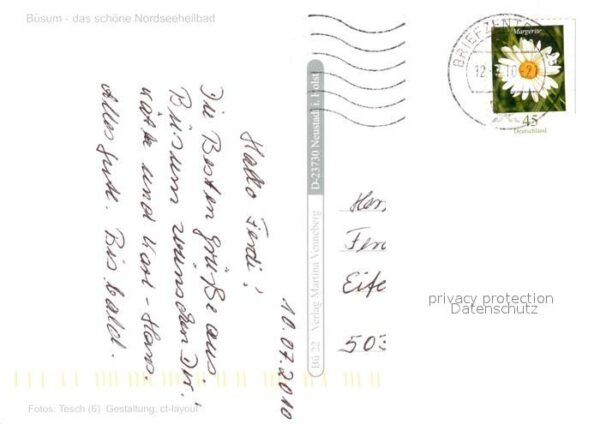 Büsum - das schöne Nordseeheilbad
10.07.2010
Hallo Ferdi!
Die Besten grüße aus
Büsum wünschen Dir,
und Karl-Hans.
Alles gute. Bis bald.
Bü 22 Verlag Martina Venneberg D-23730 Neustadt i. Holst
Margerite
45
Deutschland
BRIEFZENTR
Her
Fer
Eife
503
privacy protection
Datenschutz
Fotos: Tesch (6) Gestaltung: ct-layout